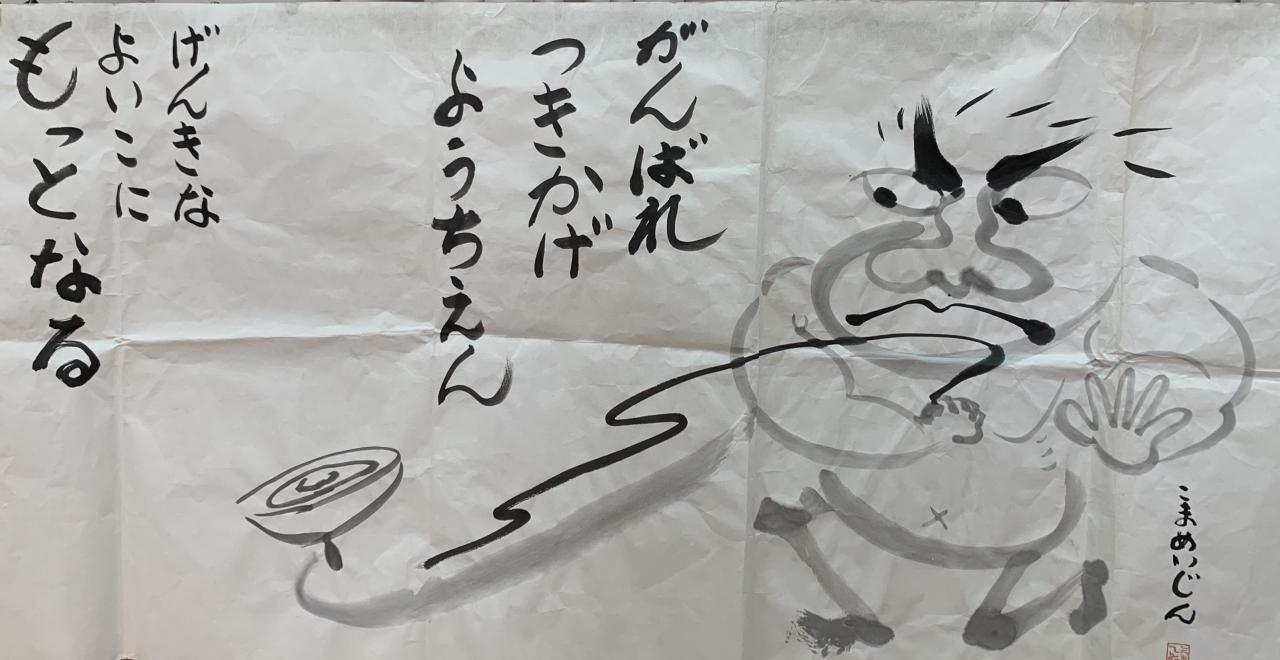 がんばれ
つきかげ
ようちえん
げんきな
よいこに
もっとなる
こまめいじん